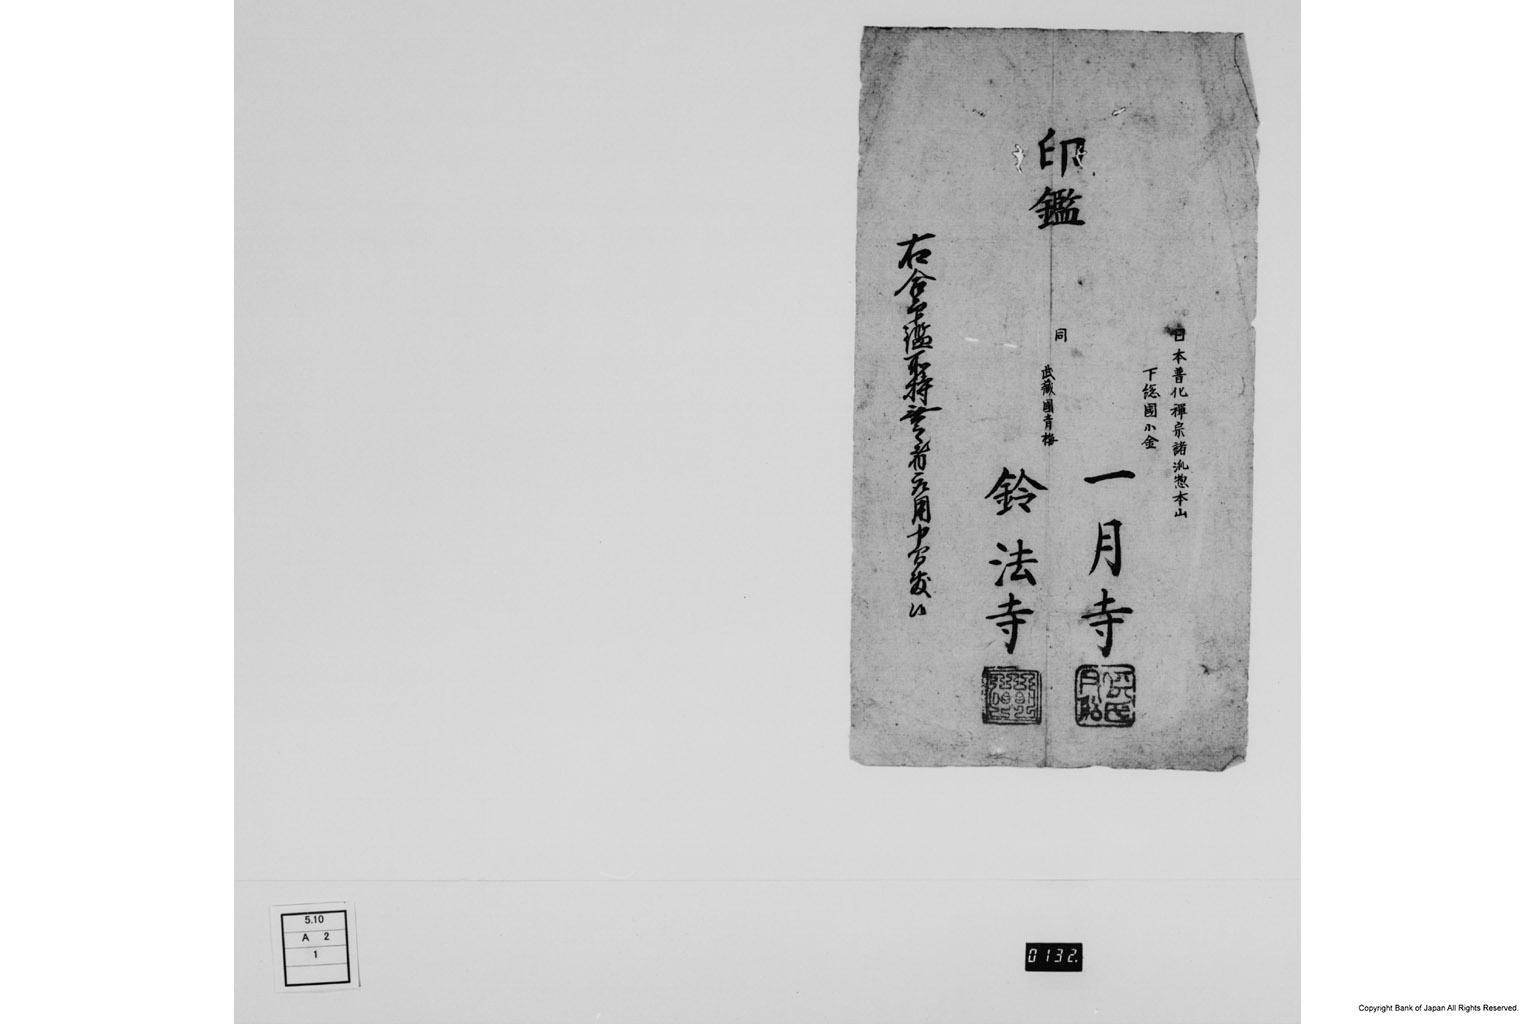 印鑑
日本普化禪宗諸流惣本山
下総國小金
一月寺
同
武藏國青梅
鈴法寺
右合印鑑取持無之者庄用申間敷候
5.10
A 2
1
0132.
Copyright Bank of Japan All Rights Reserved.